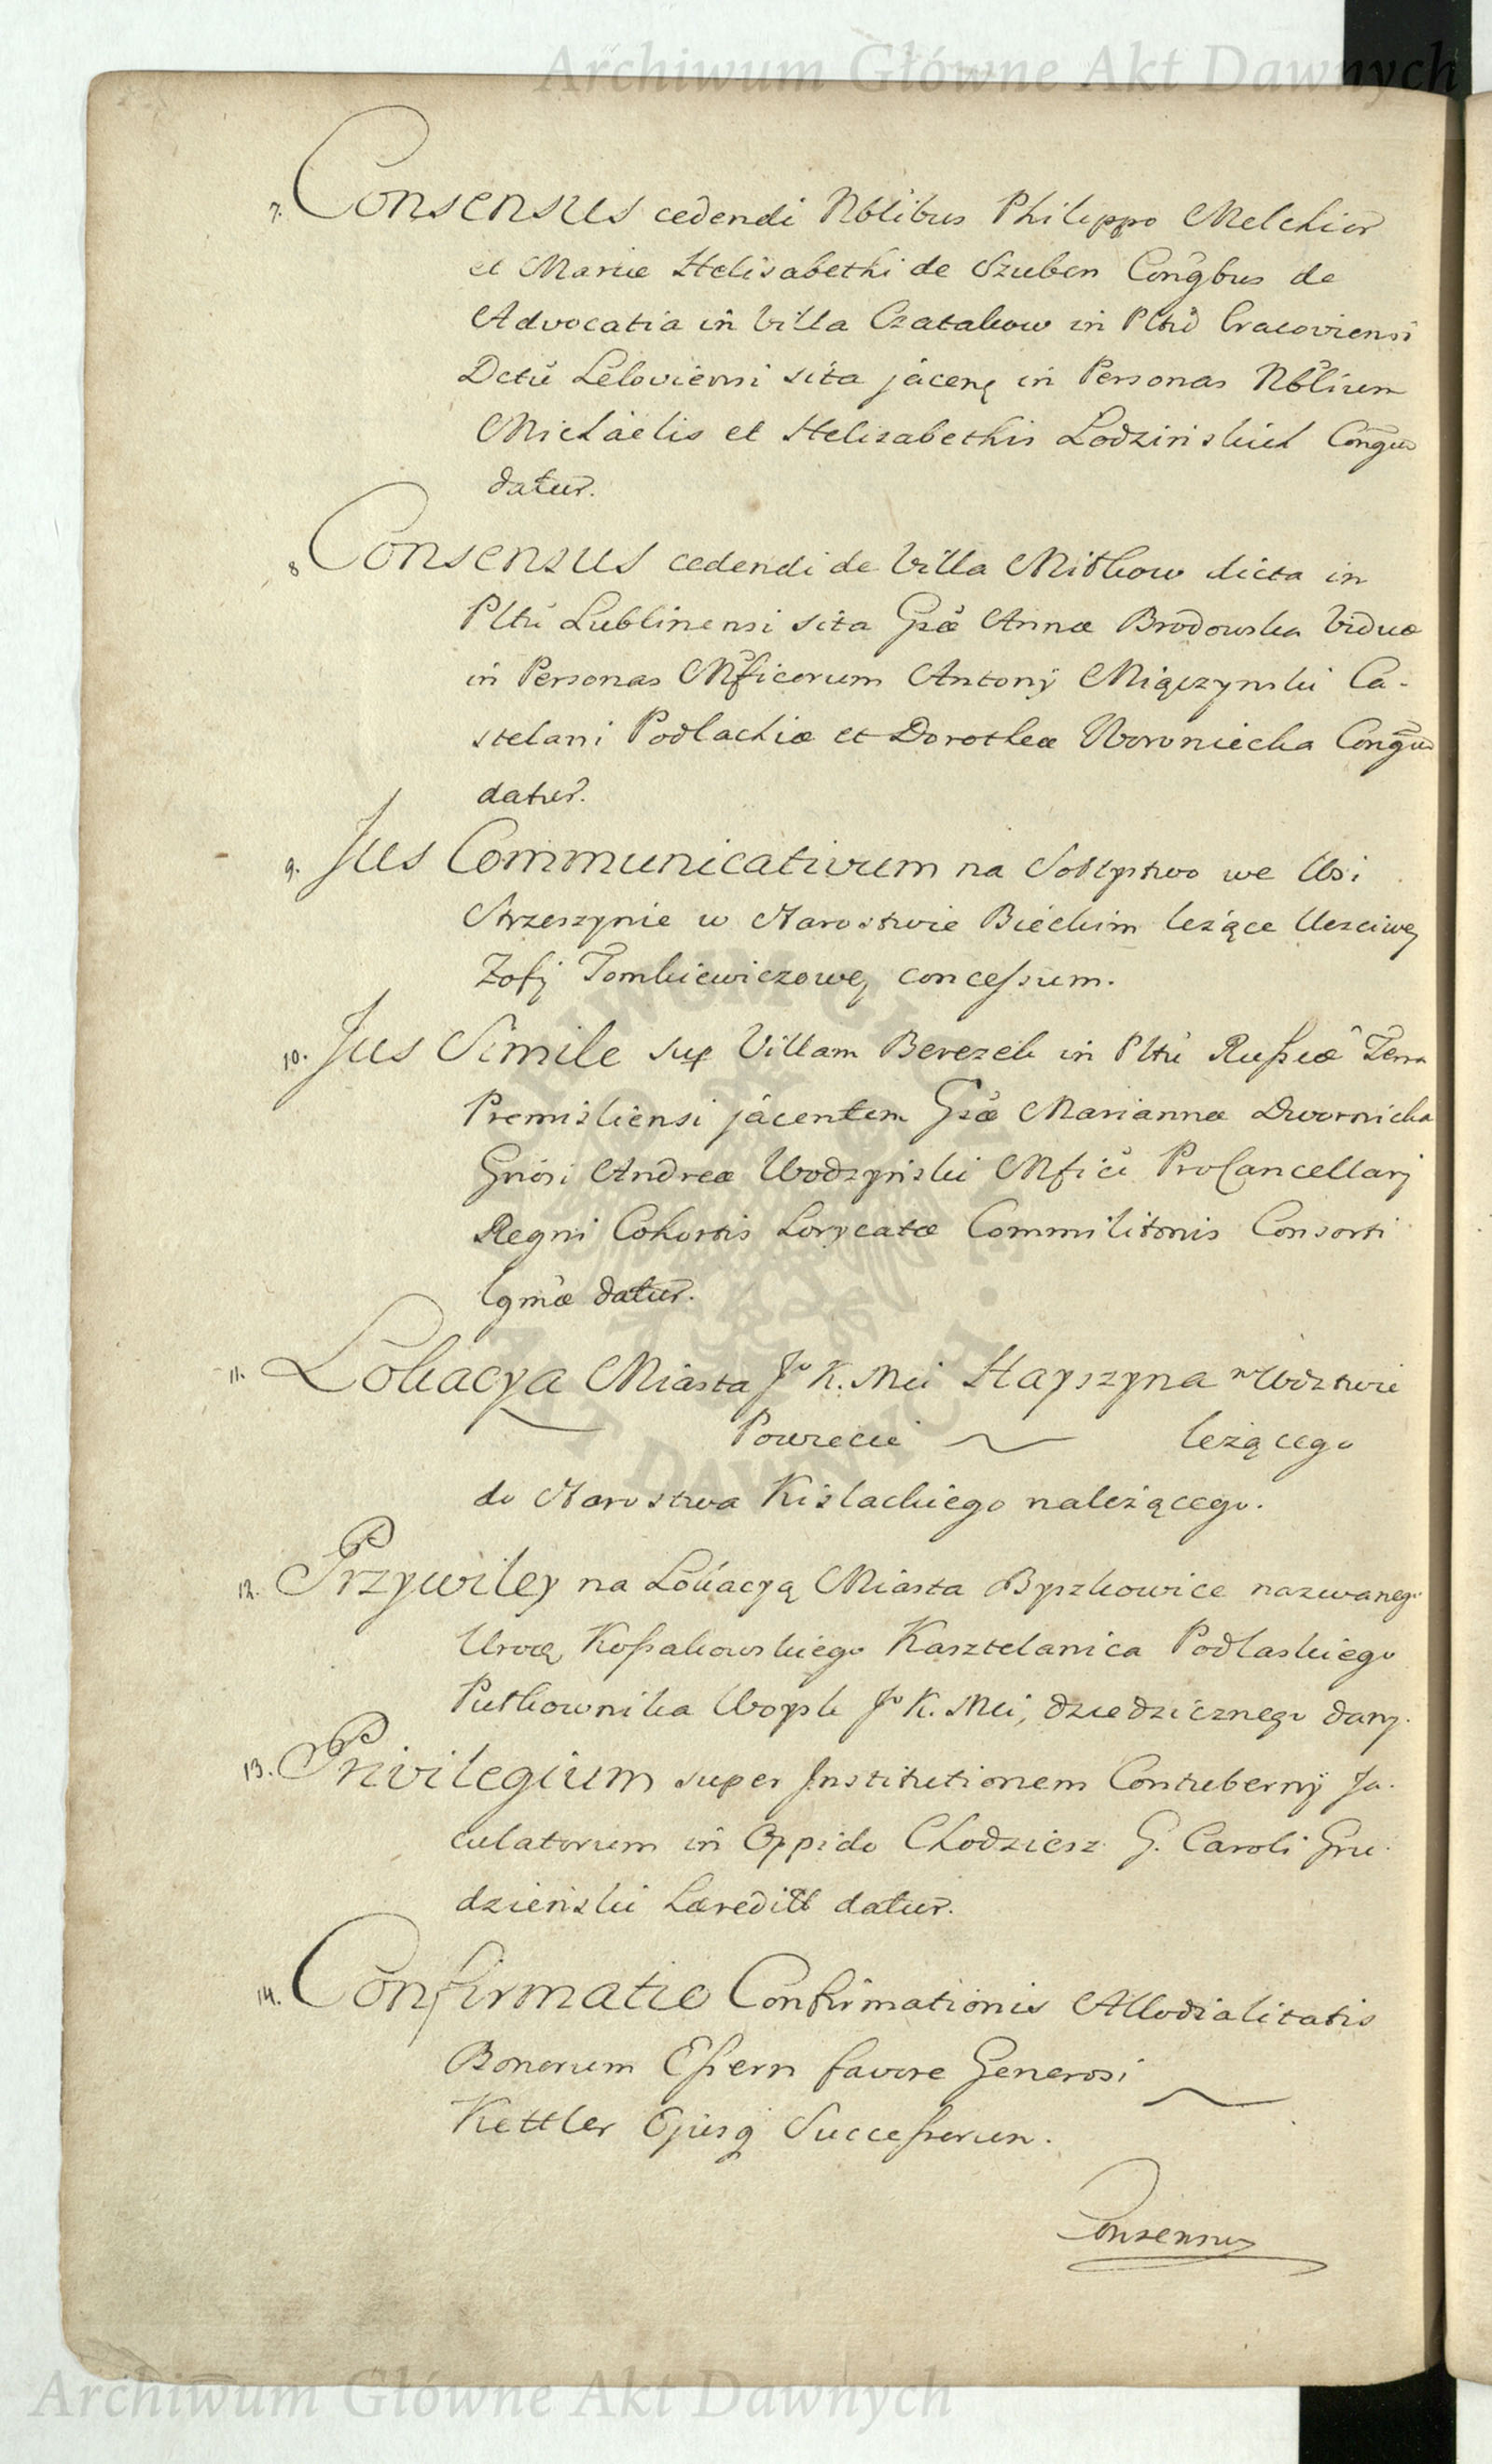 Archiwum Główne Akt Dawnych
7. Consensus cedendi Nblibus Philippo Melchior
et Mariæ Helisabethi de Szuben Congbus de
Advocatia in Villa Czatakow in Pltũ Cracoviensi
Dctũ Leloviensi sita jacenę in Personas Nblium
Michaelis et Helisabethis Lodzinskich Congũ
datur.
8 Consensus cedendi de Villa Mitkow dicta in
Pltũ Lublinensi sita Gsæ Annæ Brodowska Viduæ
in Personas Mficorum Antonÿ Miączynski Ca-
stelani Podlachiæ et Dorotheæ Woroniecka Congũ
datur.
9. Jus Communicativum na Soltystwo we Wsi
Strzeszynie w Starostwie Bieckim leżące Uczciwey
Zofij Tomkiewiczowey concessum.
10. Jus Simile sup Villam Berezek in Pltũ Russiæ Terra
Premisliensi jacentem Gsæ Mariannæ Dwornicka
Gnosi Andreæ Wodzyński Mfici ProCancellarj
Regni Cohortis Lorycatæ Commilitonis Consorti
lgmæ datur.
11. Lokacya Miasta Jo K. Mci Hayszyna w Wdztwie
Powiecie leżącego
do Starostwa Kislackiego należącego.
12. Przywiley na Lokacyą Miasta Byszkowice nazwanego
Urogę Kossakowskiego Kasztelanica Podlaskiego
Putkownika Woysk Jo K. Mci, dziedzicznego dany.
13. Privilegium super Institutionem Contubernÿ Ja-
culatorum in Oppido Chodziesz G. Caroli Gru-
dzieński hæredit datur.
14. Confirmatio Confirmationis Allodialitatis
Bonorum Essern favore Generosi
Kettler Ejusq Successorum.
Consensus
Archiwum Główne Akt Dawnych
ARCHIWUM GŁÓWNE AKT DAWNYCH